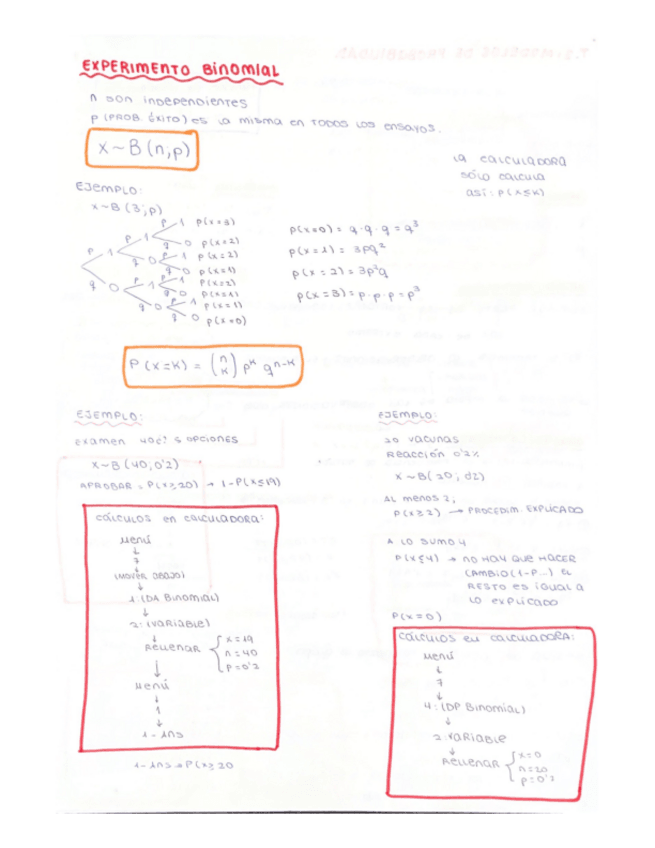 EXPERIMENTO BINOMIAL
n son independientes
p (PROB. ÉXITO) es la misma en TODOS LOS ENSAYOS.
X ~ B (n, p)
LA CALCULADORA
SÓLO CALCULA
así: P(X≤K)
EJEMPLO:
X ~ B (3; p)
p 1 p 1 p 1 P(x=3)
q 0 P(x=2)
q 0 p 1 P(x=2)
q 0 P(x=1)
q 0 p 1 p 1 P(x=2)
q 0 P(x=1)
q 0 p 1 P(x=1)
q 0 P(x=0)
P(x=0) = q · q · q = q³
P(x=1) = 3pq²
P(x=2) = 3p²q
P(x=3) = p · p · p = p³
P(X=K) = (n K) p^K q^n-K
EJEMPLO:
examen 40c? 5 OPCIONES
X ~ B (40; 0'2)
APROBAR = P(X≥20) → 1-P(X≤19)
CÁLCULOS en CALCULADORA:
Menú
↓
7
↓
(MOVER ABAJO)
↓
1: (DA BINOMIAL)
↓
2: (VARIABLE)
↓
RELLENAR { x=19
n=40
p=0'2
↓
Menú
↓
1
↓
1 - Ans
1 - Ans = P(X≥20
EJEMPLO:
20 vacunas
Reacción 0'2%
X ~ B (20;
AL menos 2,
P(X≥2) → PROCEDIM. EXPLICADO
A LO SUMO 4
P(X≤4) → NO HAY QUE HACER
CAMBIO (1-P...) EL
RESTO ES IGUAL A
LO EXPLICADO
P(X=0)
CÁLCULOS EN CALCULADORA:
Menú
↓
7
↓
4: (DP BINOMIAL)
↓
2: VARIABLE
↓
RELLENAR { x=0
n=20
p=0'2